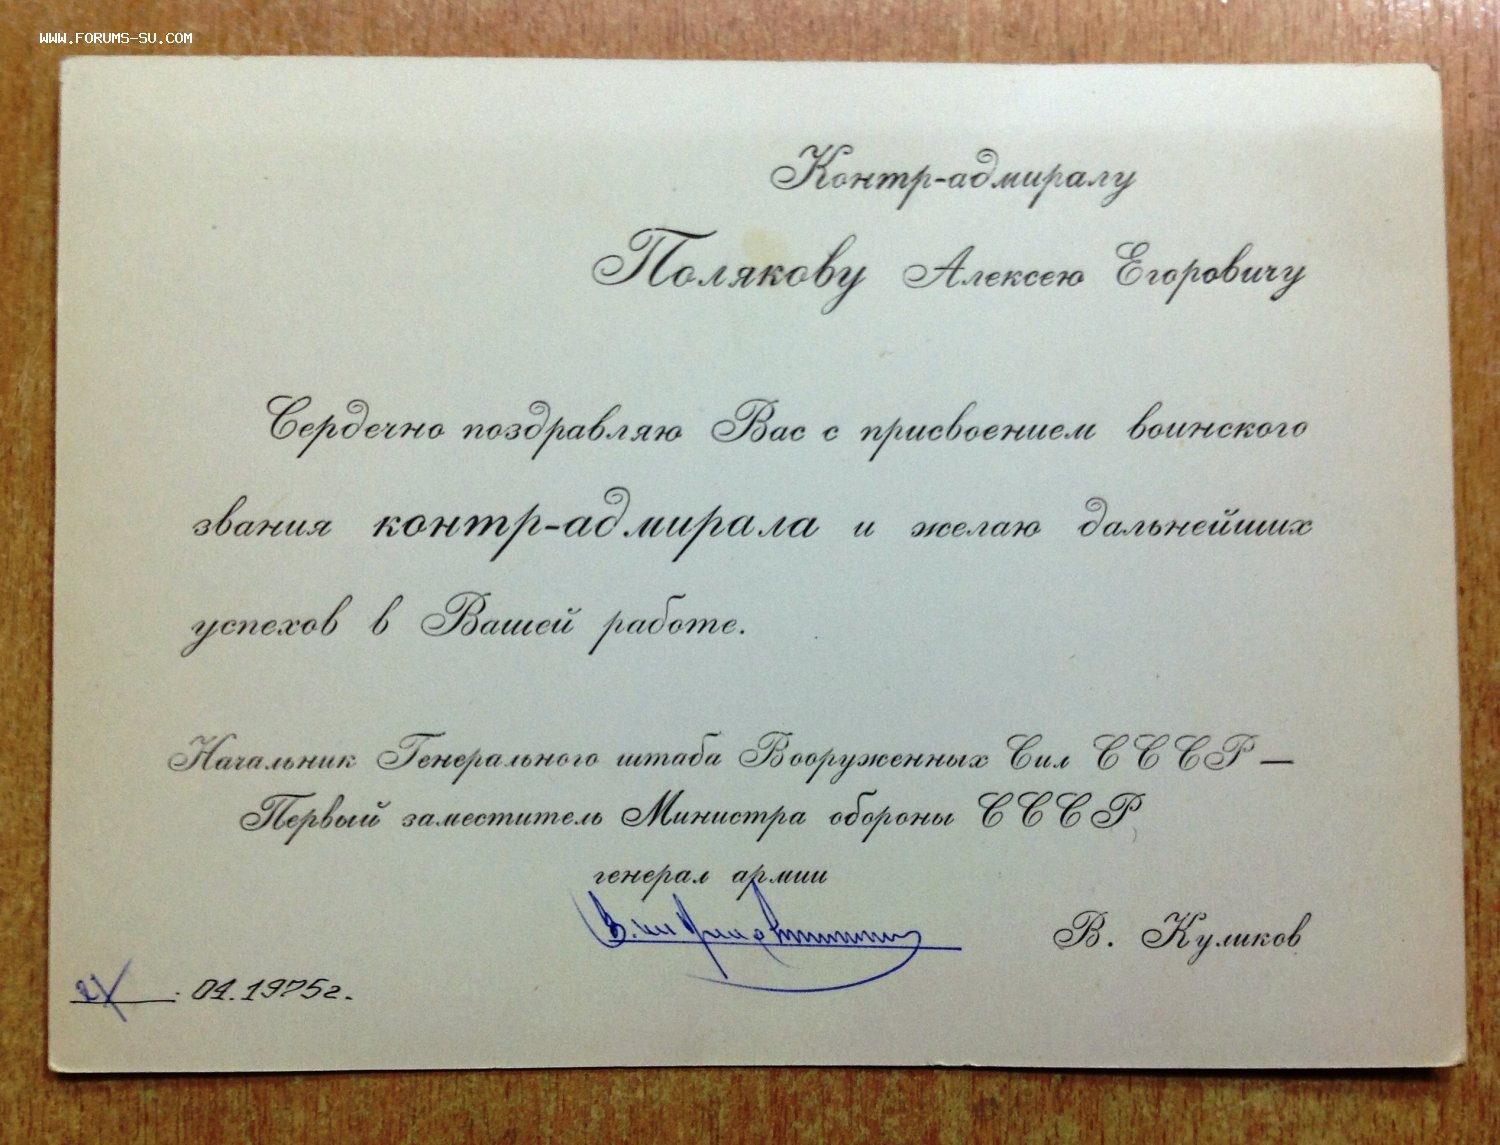 WWW.FORUMS-SU.COM
Контр-адмиралу
Полякову Алексею Егоровичу
Сердечно поздравляю Вас с присвоением воинского
звания контр-адмирала и желаю дальнейших
успехов в Вашей работе.
Начальник Генерального штаба Вооруженных Сил СССР —
Первый заместитель Министра обороны СССР
генерал армии
В. Куликов
. 04.1975г.